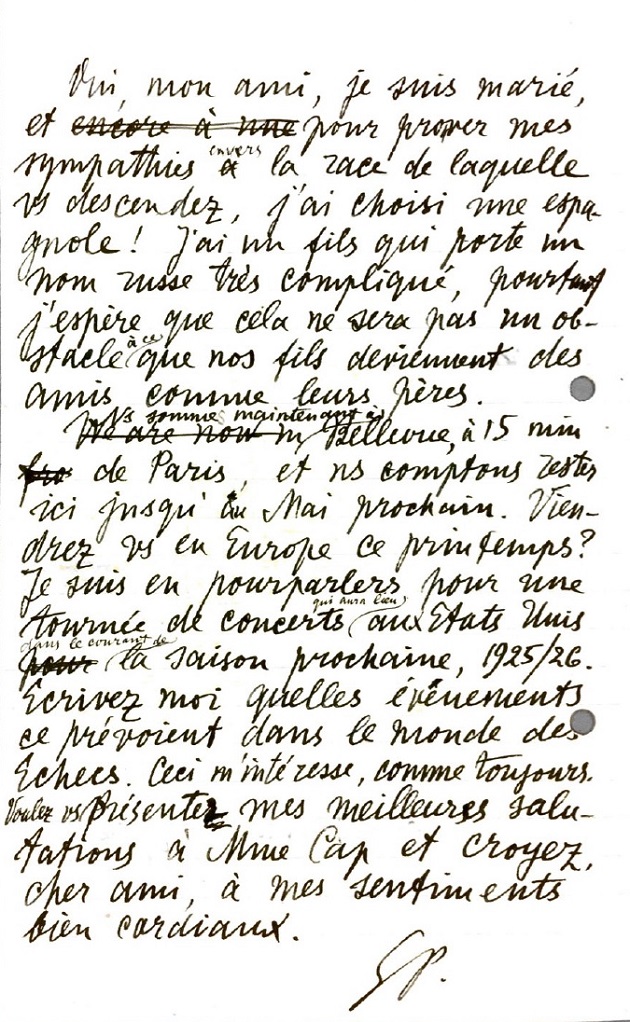 Oui, mon ami, je suis marié,
et encore à une pour prover mes
sympathies à envers la race de laquelle
vs descendez, j'ai choisi une espa-
gnole! J'ai un fils qui porte un
nom russe très compliqué, pourtant
j'espère que cela ne sera pas un ob-
stacle à ce que nos fils deviennent des
amis comme leurs pères.
Ns sommes maintenant à
We are now in Bellevue, à 15 min
fro de Paris, et ns comptons rester
ici jusqu'au Mai prochain. Vien-
drez vs en Europe ce printemps?
Je suis en pourparlers pour une
qui aura lieu
tournée de concerts aux Etats Unis
dans le courant de
pour la saison prochaine, 1925/26.
Ecrivez moi quelles évènements
ce prévoient dans le monde des
Echecs. Ceci m'intéresse, comme toujours.
Voulez vs présenter mes meilleures salu-
tations à Mme Cap et croyez,
cher ami, à mes sentiments
bien cordiaux.
SP.